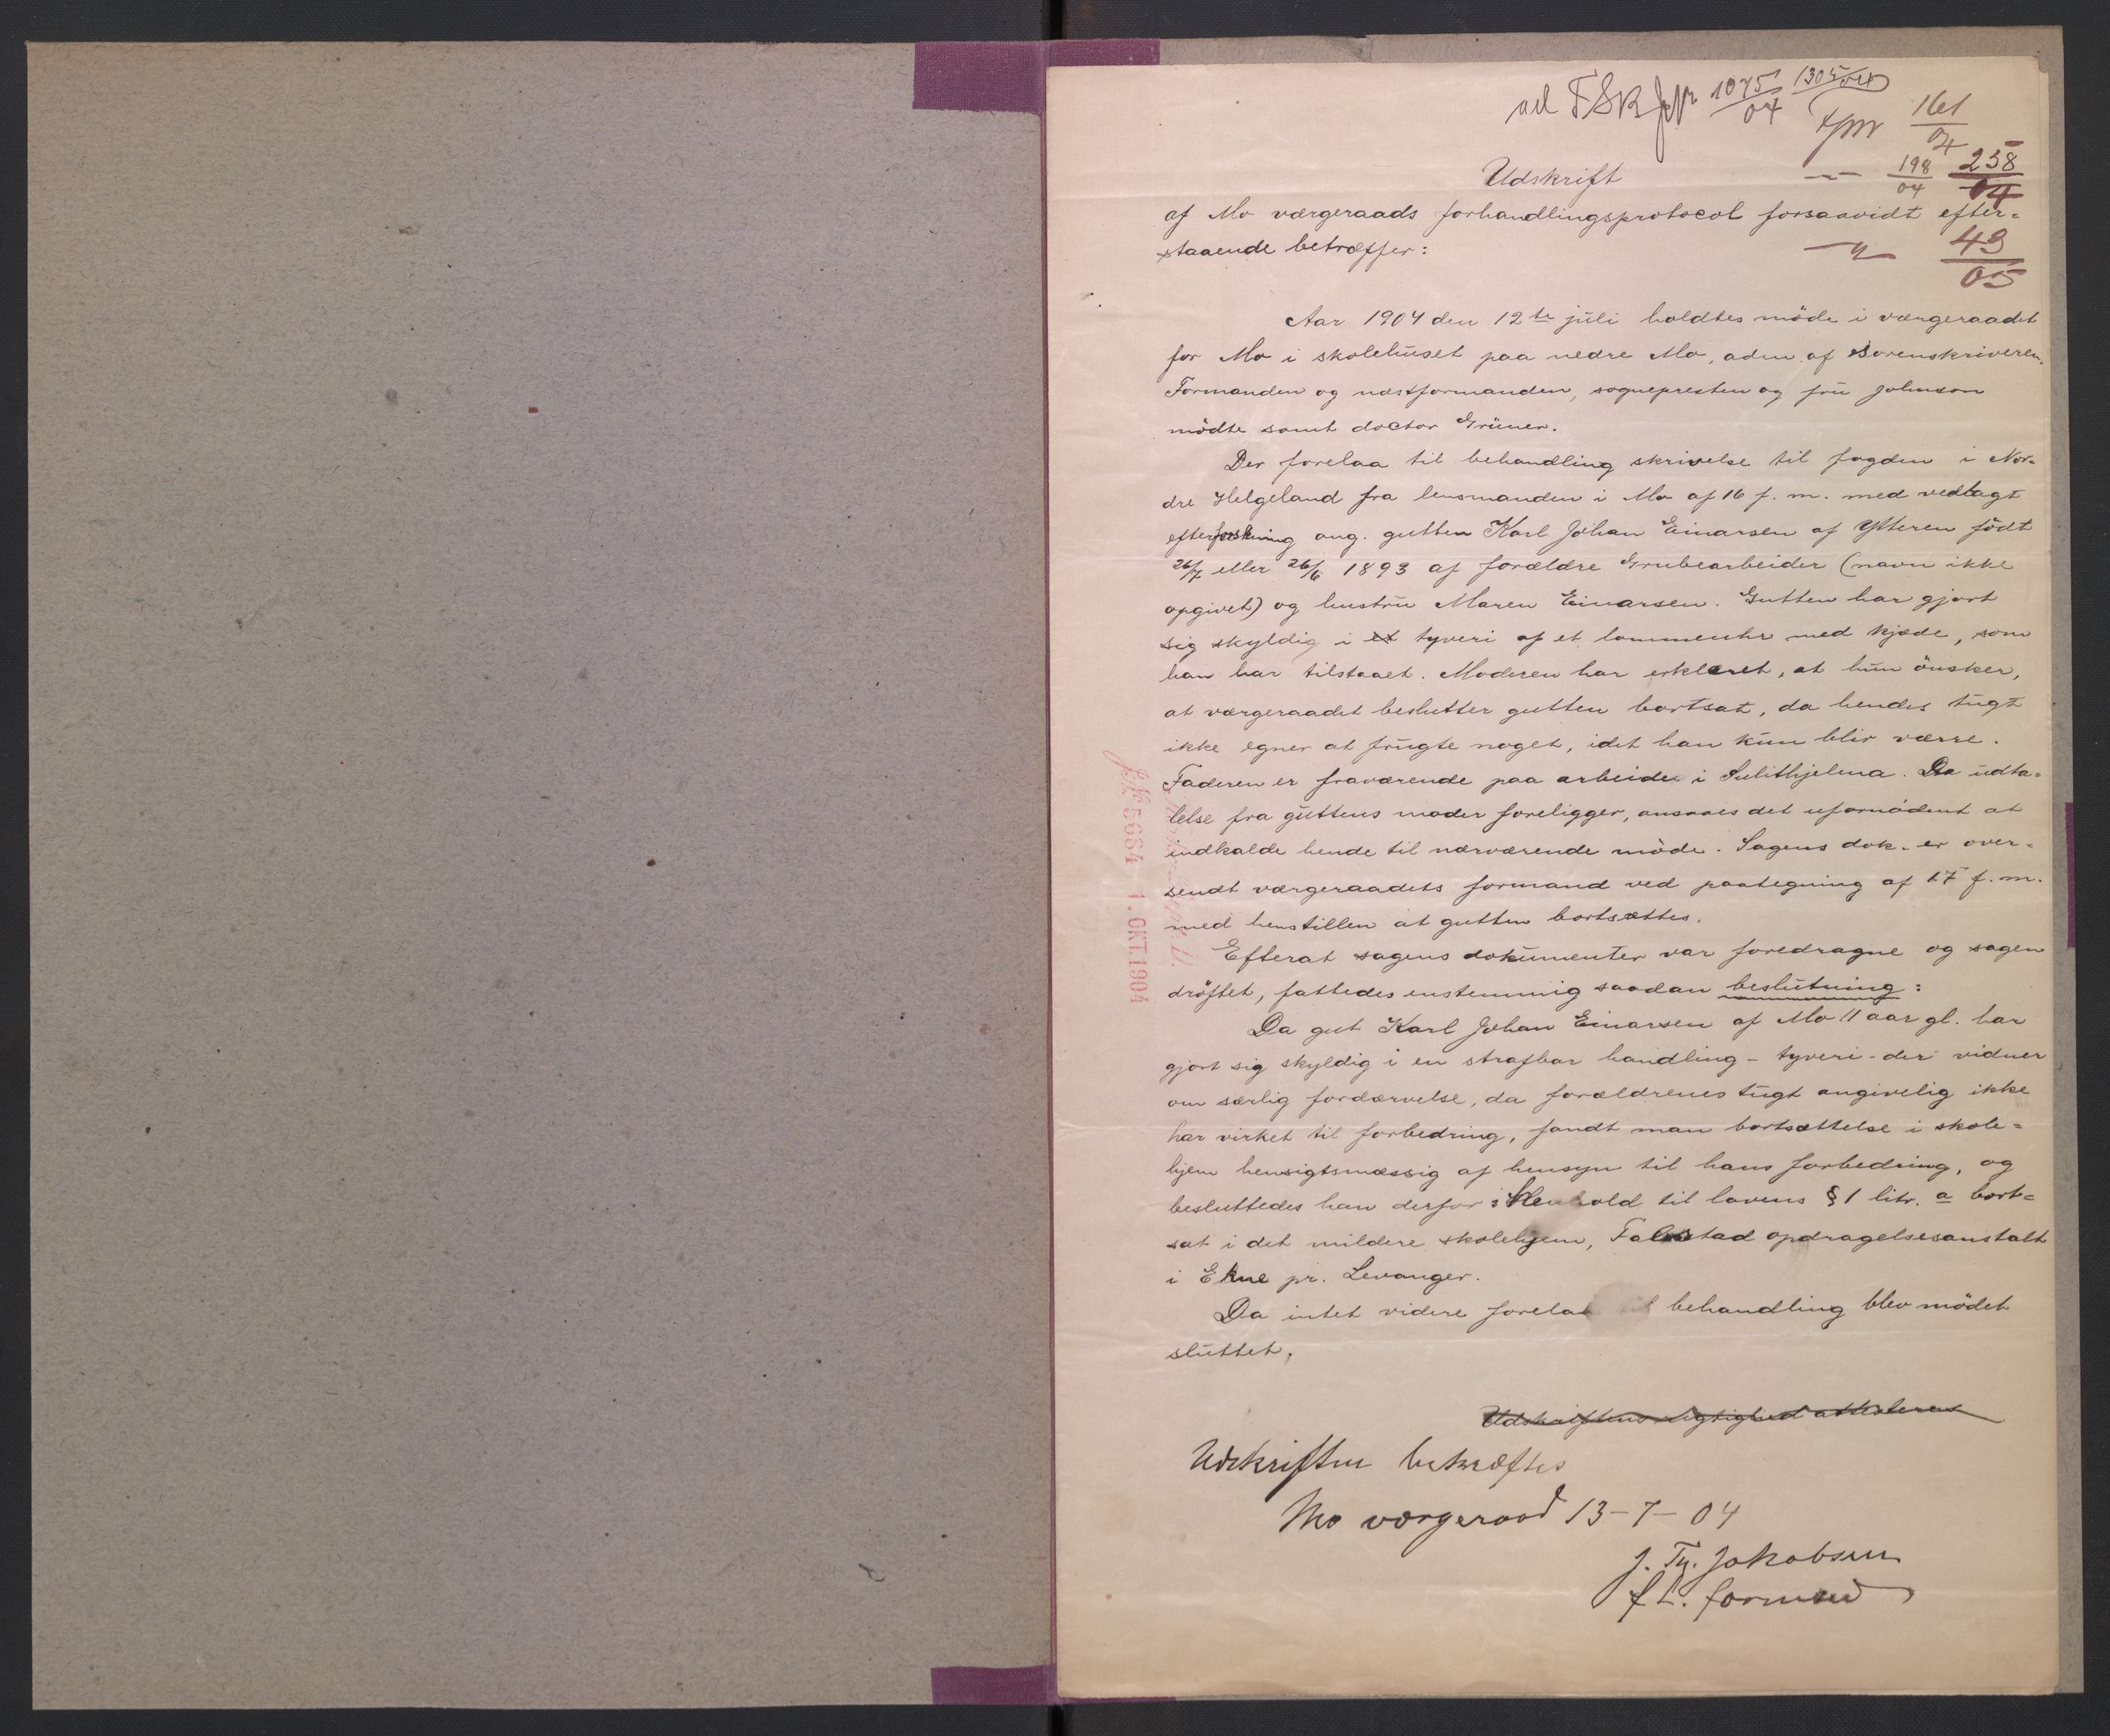 ad FSK Jnr 1075/04 1305/04
Jnr 161/04
— 198/04 258/04
Udskrift
af Mo værgeraads forhandlingsprotocol forsaavidt efter-
staaende betræffer:
— " — 43/05
Aar 1904 den 12te juli holdtes möde i værgeraadet
for Mo i skolehuset paa nedre Mo, adm. af Sorenskriveren.
Formanden og næstformanden, sognepresten og fru Johnson
mödte samt doctor Grüner.
Der forelaa til behandling skrivelse til fogden i Nor-
dre Helgeland fra lensmanden i Mo af 16 f. m. med vedlagt
efterforskning ang. gutten Karl Johan Einarsen af Ytteren födt
26/7 eller 26/6 1893 af forældre Grubearbeider (navn ikke
opgivet) og hustru Maren Einarsen. Gutten har gjort
sig skyldig i et tyveri af et lommeuhr med kjæde, som
han har tilstaaet. Moderen har erklæret, at hun önsker,
at værgeraadet beslutter gutten bortsat, da hendes tugt
ikke egner at frugte noget, idet han kun blir værre.
Faderen er fraværende paa arbeide i Sulithjelma. Da udta-
lelse fra guttens moder foreligger, ansaaes det ufornödent at
indkalde hende til nærværende möde. Sagens dok. er over-
sendt værgeraadets formand ved paategning af 17 f. m.
med henstillen at gutten bortsættes.
Efterat sagens dokumenter var foredragne og sagen
dröftet, fattedes enstemmig saadan beslutning:
Da gut Karl Johan Einarsen af Mo 11 aar gl. har
gjort sig skyldig i en strafbar handling - tyveri - der vidner
om særlig fordærvelse, da forældrenes tugt angivelig ikke
har virket til forbedring, fandt man bortsættelse i skole-
hjem hensigtsmæssig af hensyn til hans forbedring, og
besluttedes han derfor i Henhold til lovens § 1 litr. a bort-
sat i det mildere skolehjem, Falstad opdragelsesanstalt
i Ekne pr. Levanger.
Da intet videre forelaa til behandling blev mödet
sluttet.
Udskriftens rigtighed attesteres
Udskriften bekræftes
Mo værgeraad 13-7-04
J. Tg. Jakobsen
f. t. formand
J.№ 5634 1. OKT. 1904